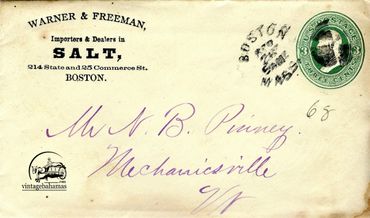 WARNER & FREEMAN,
Importers & Dealers in
SALT,
214 State and 25 Commerce St.
BOSTON.
BOSTON
MASS.
68
Mr N. B. Pinney.
Mechanicsville
Vt
vintagebahamas